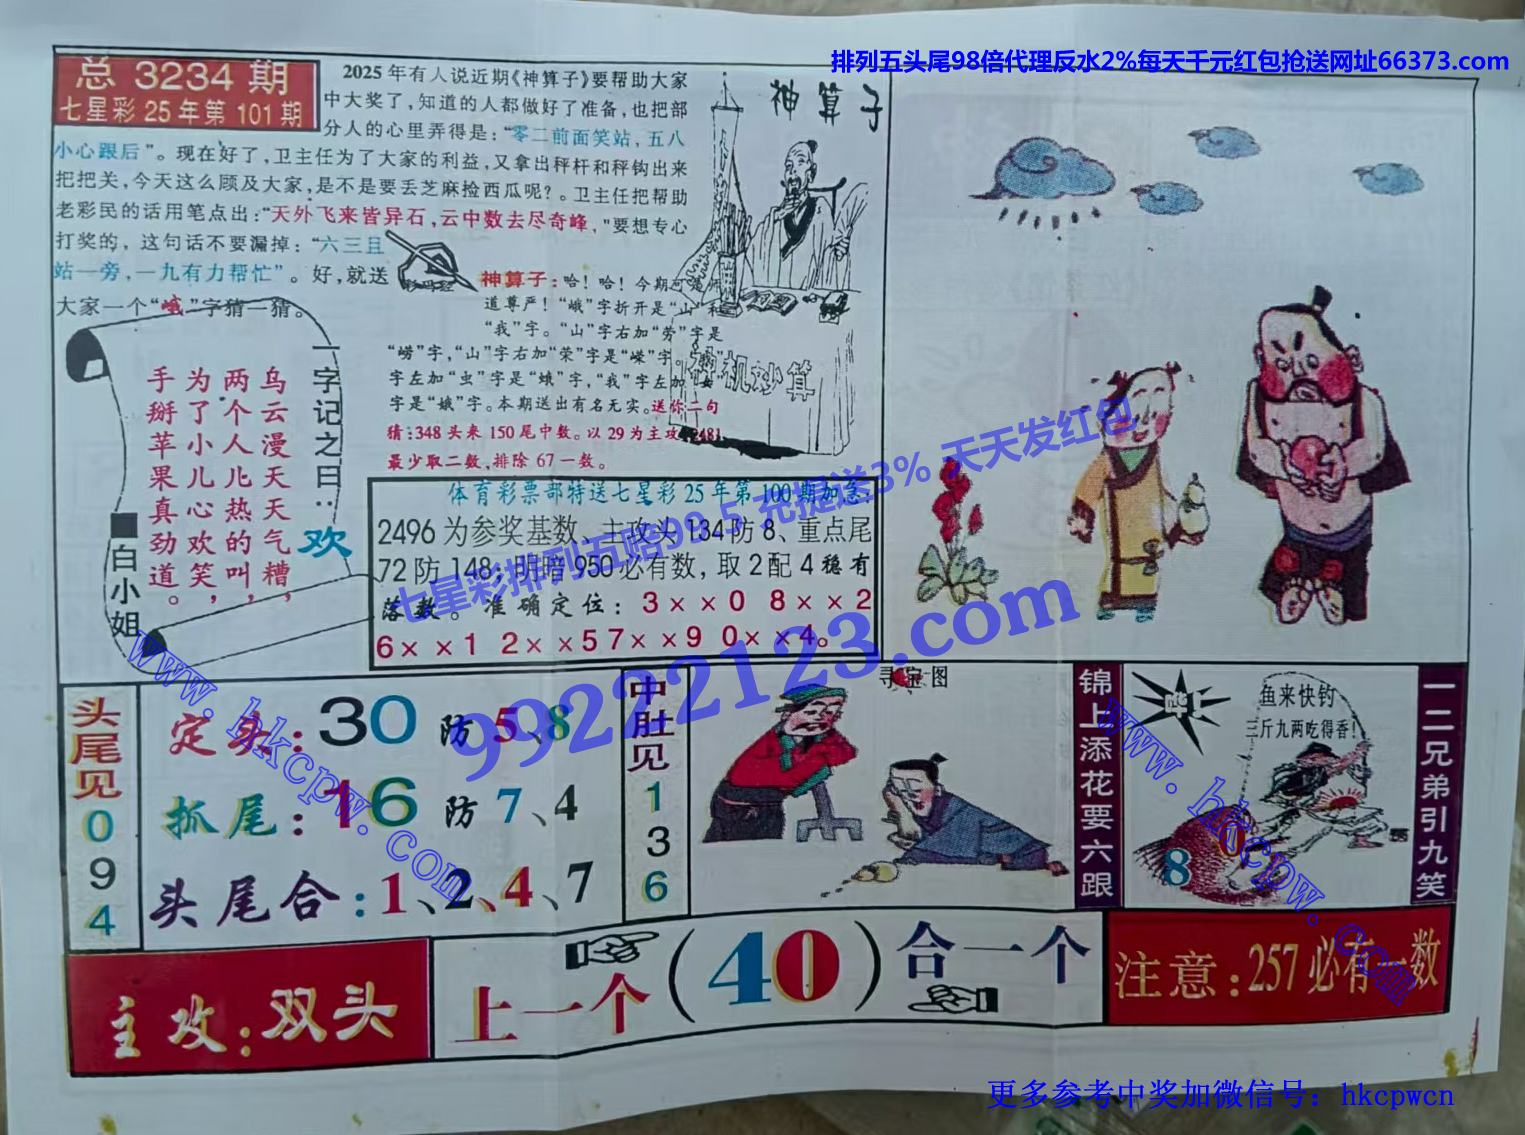 排列五头尾98倍代理反水2%每天千元红包抢送网址66373.com
总 3234 期
七星彩 25 年第 101 期
2025 年有人说近期《神算子》要帮助大家
中大奖了，知道的人都做好了准备，也把部
分人的心里弄得是：“零二前面笑站，五八
小心跟后”。现在好了，卫主任为了大家的利益，又拿出秤杆和秤钩出来
把把关，今天这么顾及大家，是不是要丢芝麻捡西瓜呢？。卫主任把帮助
老彩民的话用笔点出：“天外飞来皆异石，云中数去尽奇峰，”要想专心
打奖的，这句话不要漏掉：“六三且
站一旁，一九有力帮忙”。好，就送
大家一个“峨”字猜一猜。
神算子
神算子：哈！哈！今期
道尊严！“峨”字折开是“山”和
“我”字。“山”字右加“劳”字是
“崂”字，“山”字右加“荣”字是“嵘”字。
字左加“虫”字是“蛾”字，“我”字左加
字是“娥”字。本期送出有名无实。送你二句
猜：348 头来 150 尾中数。以 29 为主攻，2481
最少取二数，排除 67 一数。
机妙算
一字记之曰：欢
乌云漫天天气糟，
两个人儿热的叫，
为了小儿心欢笑，
手掰苹果真劲道。
■白小姐
体育彩票部特送七星彩 25 年第 100 期加急：
2496 为参奖基数、主攻头 134 防 8、重点尾
72 防 148；明暗 950 必有数，取 2 配 4 稳有
落数。准确定位：3××0 8××2
6××1 2××5 7××9 0××4。
七星彩排列五赔99.5 充提送3% 天天发红包
99222123.com
www.hkcpw.com
www.hkcpw.com
头尾见094
定头：30 防 5、8
抓尾：16 防 7、4
头尾合：1、2、4、7
中肚见136
寻宝图
锦上添花要六跟
鱼来快钓
三斤九两吃得香！
8 0
一二兄弟引九笑
主攻：双头
上一个（40）合一个
注意：257 必有一数
更多参考中奖加微信号：hkcpwcn